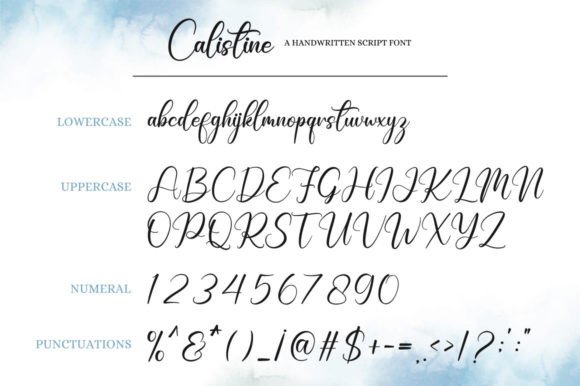 Calistine A HANDWRITTEN SCRIPT FONT
LOWERCASE abcdefghijklmnopqrstuvwxyz
UPPERCASE ABCDEFGHIJKLMN
OPQRSTUVWXYZ
NUMERAL 1234567890
PUNCTUATIONS %^&*()_!@#$+-=,.<>/?;':"